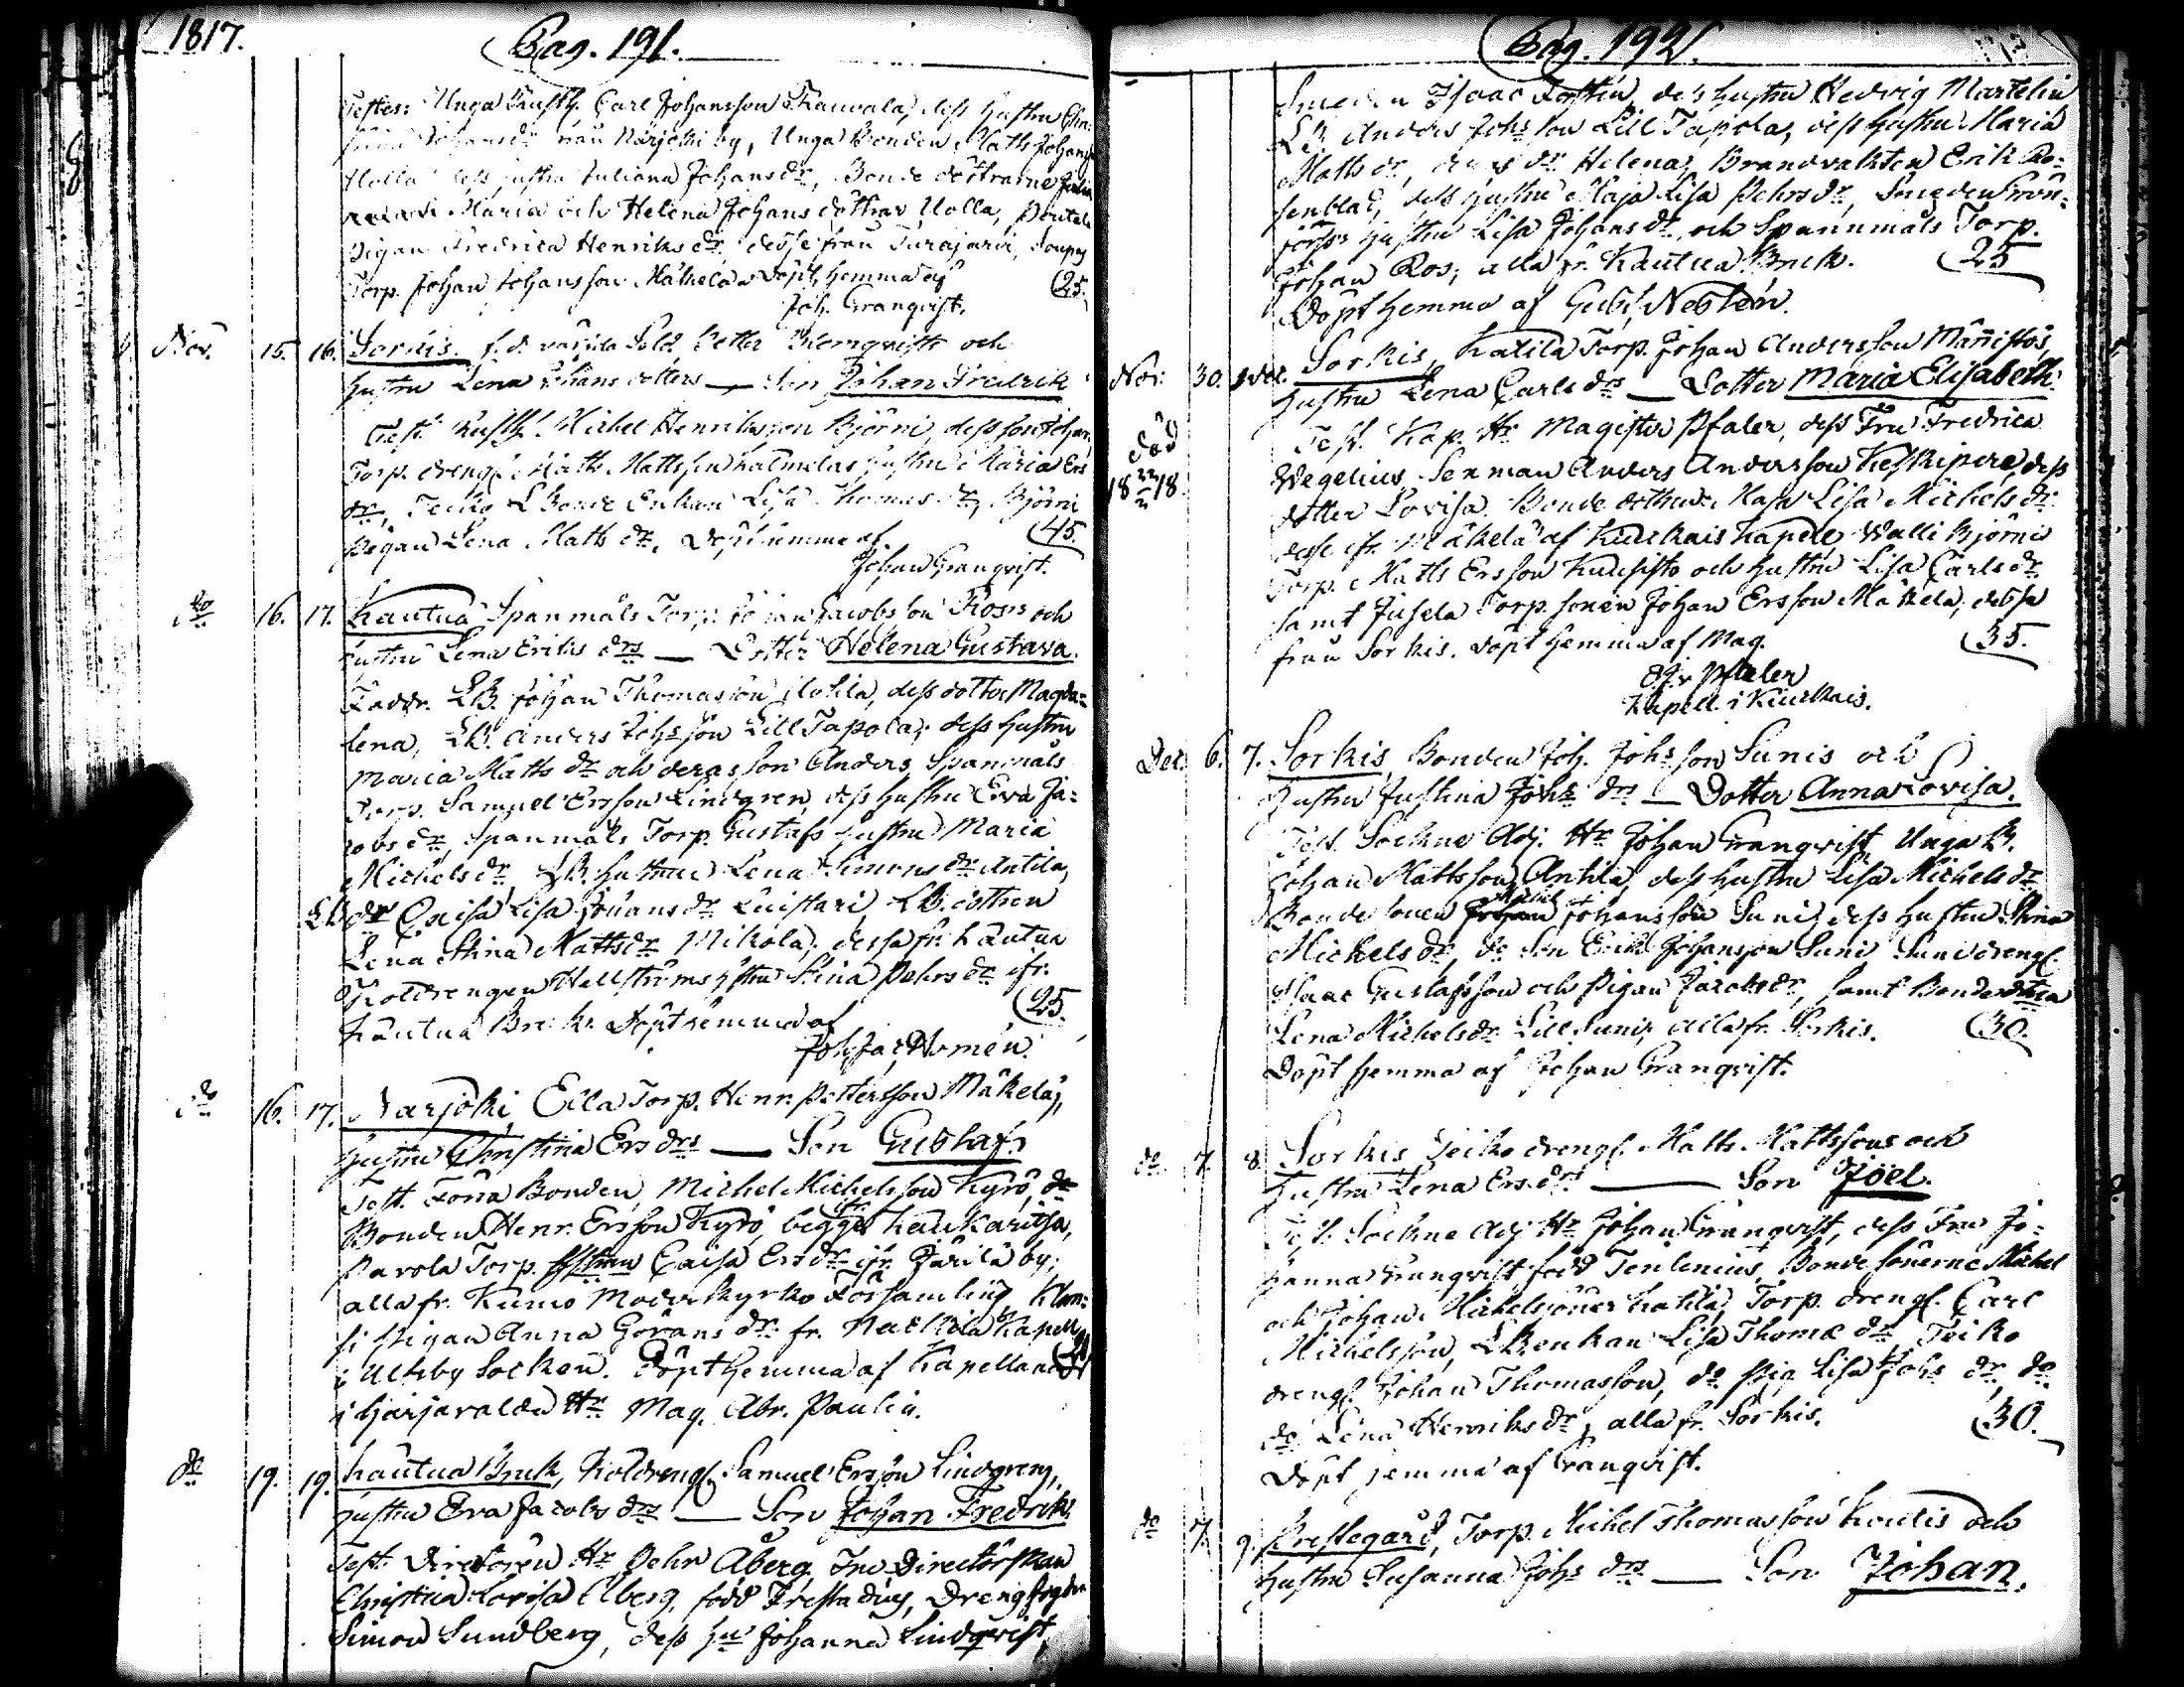 1817.
Pag. 191.
Testes: Unga Rusth. Carl Johansson Knuvala, dess hustru
Johansdr från Närjöki by, Unga Bonden Matts Johanss.
Uolla dess hustru Juliana Johansdr, Bonde döttrarne
Maria och Helena Johans döttrar Uolla,
Pigan Fredrica Henriks dr desse från Turajärvi,
Torp. Johan Johansson Mäkelä Döpt hemma af
(25.
Joh. Granqvist.
Nov. 15. 16. Sorkis. f. d. Sold. Petter Blomqvists och
hustru Lena Johans dotters — Son Johan Fredrik
Test. Rusth. Michel Henriksson Björni, dess son Johan,
Torp. drengen Matts Mattsson hustru Maria Ers
dr, Teiko LBonde Enkan Lisa Thomas dr, Björni
Pigan Lena Matts dr. Döpt hemma af
(45.
Johan Granqvist.
do 16. 17. Kautua Spanmåls Torp: Johan Jacobsson Ros's och
hustru Lena Eriks drs — Dotter Helena Gustava.
Faddr. LB. Johan Thomasson, dess dotter Magda-
lena, LB. Anders Johsson Lill Tapola, dess hustru
Maria Matts dr och deras son Anders Spanmåls
Torp. Samuel Ersson Lindgren, dess hustru Eva Ja-
cobs dr, Spanmåls Torp. Gustafs hustru Maria
Michels dr, LB. hustrun Lena Simons dr Antila,
LB dr Caisa Lisa Johans dr Luistari, LB. dottren
Lena Stina Matts dr Mikola, dessa fr. Kautua
Koldrengen Hellströms hstru Stina Pehrs dr ifr.
Kautua Bruk. Döpt hemma af
(25.
Joh. Jac. Nomén.
do 16. 17. Narjöki, Eila Torp. Henr. Pettersson Mäkeläs,
hustru Christina Ers drs — Son Gustaf.
Test. Föna Bonden, Michel Michelsson Kyrö, do
Bonden Henr. Ersson Kyrö, begge ifr. Kaukaritsa,
Parola Torp. hustrun Caisa Ers dr ifr. Järilä by,
alla fr. Kumo Moderkyrko Församling
Pigan Anna Görans dr fr. Kapell
i Ulfsby Socken. Döpt hemma af Kapellanen
i Harjavalda Hr Mag. Abr. Paulin.
do 19. 19. Kautua Bruk, Koldrengs. Samuel Ersson Lindgrens,
hustru Eva Jacobs drs — Son Johan Fredrik
Test. Directören Hr Pehr Åberg, Fru Directörskan
Christina Lovisa Åberg, född Frestadius, Drengfogden
Simon Sundberg, dess hu Johanna Lindqvist,
Pag. 192.
Smeden Isaac Fostén, dess hustru Hedvig Martelin
LB. Anders Johsson Lill Tapola, dess hustru Maria
Matts dr, deras dr Helena, Brandvakten Erik Ro-
senblad, dess hustru Maja Lisa Pehrs dr, Smeden
hustru Lisa Johans dr, och Spannmåls Torp.
Johan Ros, alla fr. Kautua Bruk.
(25
Döpt hemma af Gust. Neslén.
Nov. 30. 1 Dec. Sorkis, Katila Torp. Johan Andersson Männistös,
hustru Lena Carls drs — Dotter Maria Elisabeth.
död
18 18
Test. Kap. Hr Magister Pfaler, dess Fru Fredrica
Wegelius. Sexman Anders Andersson Keskipere, dess
dotter Lovisa. Bonde dottern Maja Lisa Michels dr
desse ifr. Mäkelä af Kiukais Kapell Walli Björni
Torp. Matts Ersson Kuusisto och hustru Lisa Carls dr
samt Jusela Torp. sonen Johan Ersson Mäkelä, dessa
från Sorkis. Döpt hemma af Mag.
(35.
Pfaler
Kapell. i Kiukais.
Dec. 6. 7. Sorkis, Bonden Joh. Johsson Sunis och
hustru Justina Johs drs — Dotter Anna Lovisa.
Test. Sockne Adj. Hr Johan Granqvist, Unga B.
Johan Mattsson Antila, dess hustru Lisa Michels dr
Bonde sonen Michel Johansson Suni, dess hustru Stina
Michels dr, do Son Erik Johansson Suni, Suni drengs.
Isaac Gustafsson och Pigan Jacobs dr, samt Bonde dttren
Lena Michels dr Lill Suni, alla fr. Sorkis.
(30.
Döpt hemma af Johan Granqvist.
do 7. 8. Sorkis Teiko drengs. Matts Mattssons och
hustru Lena Ers drs — Son Joel.
Test. Sockne Adj Hr Johan Granqvist, dess Fru Jo-
hanna Granqvist född Tenlenius, Bonde sönerne Michel
och Johan Michelssöner Katila, Torp. drengs. Carl
Michelsson, LBenkan Lisa Thomæ dr, Teiko
drengs. Johan Thomasson, do Pig. Lisa Johs dr, do
do Lena Henriks dr, alla fr. Sorkis.
(30.
Döpt hemma af Granqvist.
do 7. 9. Prestegård, Torp. Michel Thomasson Koutis och
hustru Susanna Johs drs — Son Johan.